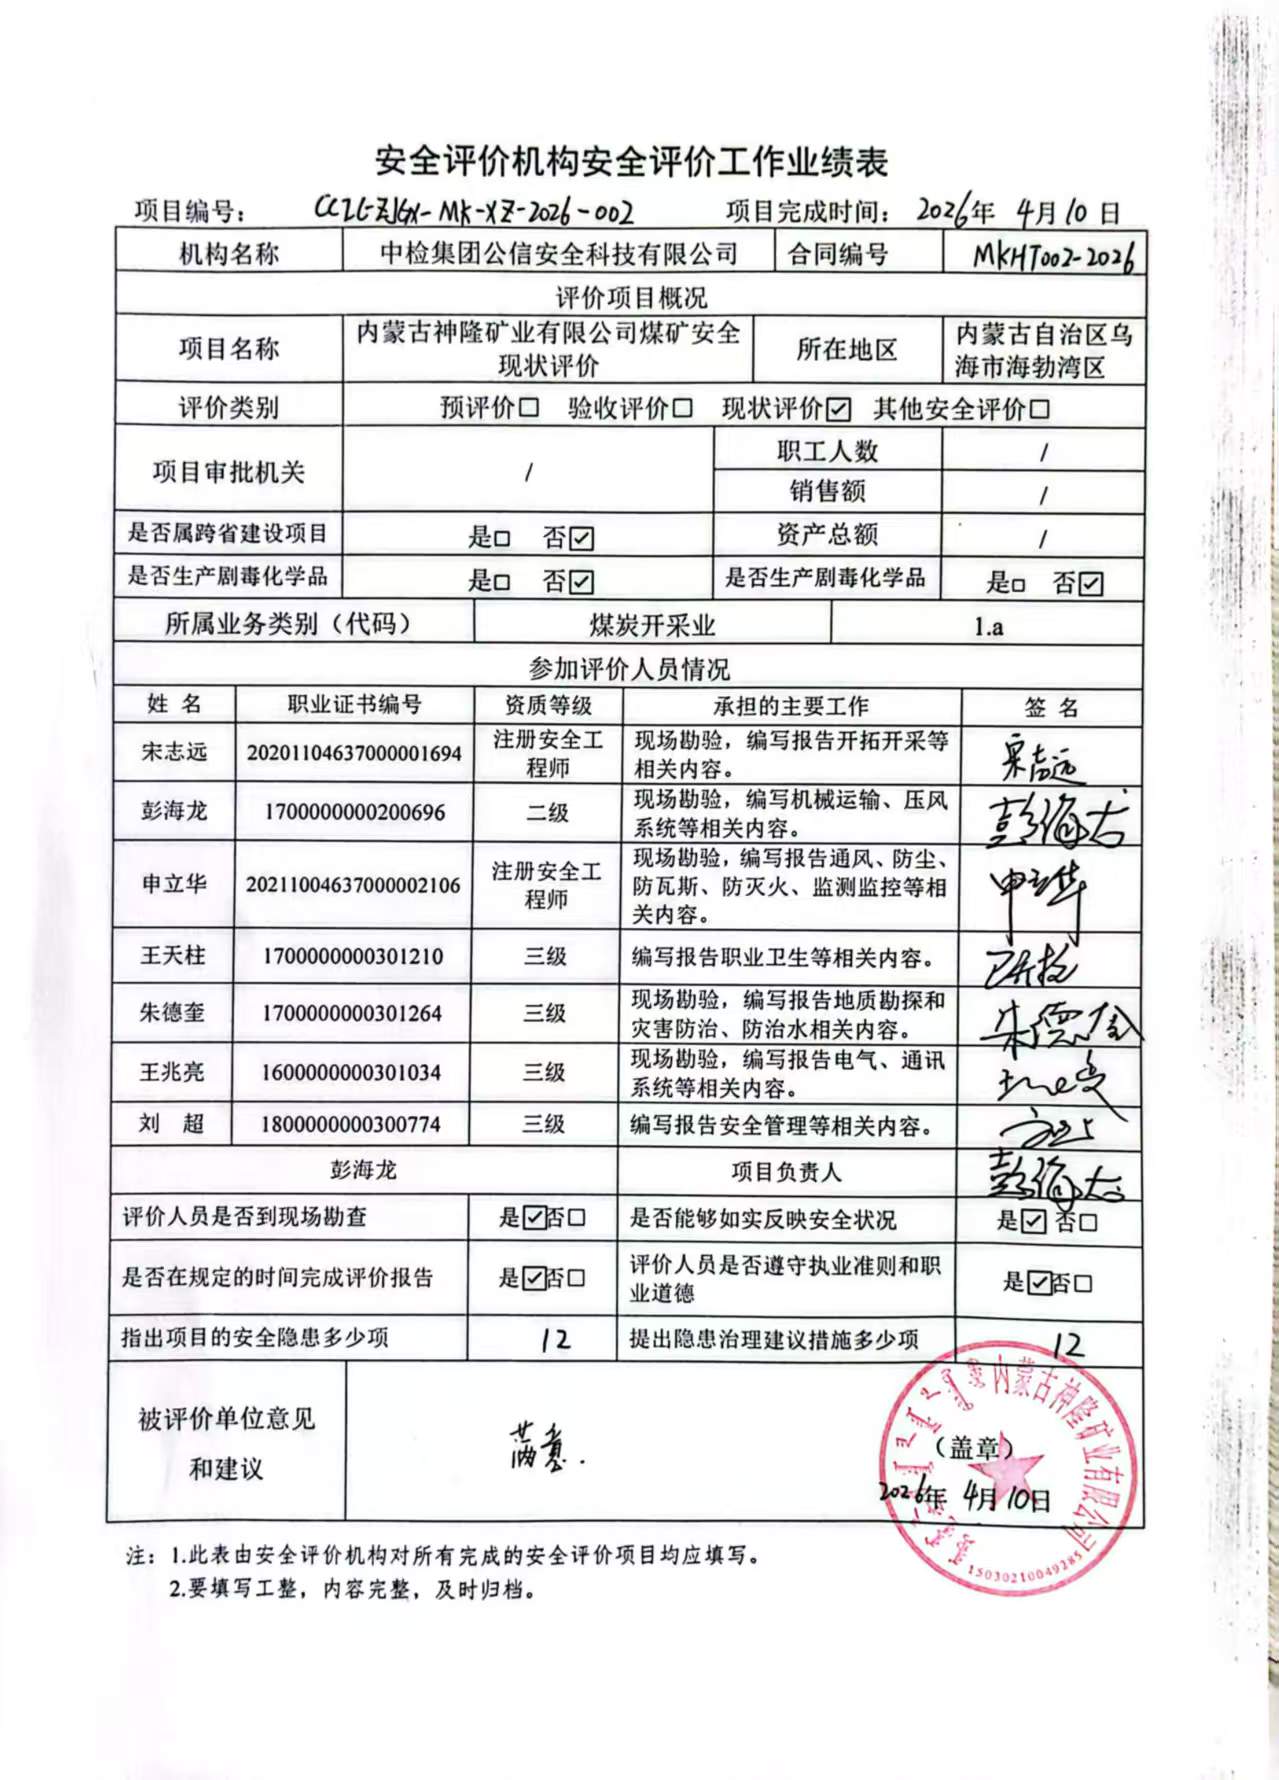 安全评价机构安全评价工作业绩表
项目编号： CCIC-ZJGX-MK-XZ-2026-002 项目完成时间： 2026年 4月10日
机构名称 中检集团公信安全科技有限公司 合同编号 MKHT002-2026
评价项目概况
项目名称 内蒙古神隆矿业有限公司煤矿安全现状评价 所在地区 内蒙古自治区乌海市海勃湾区
评价类别 预评价□ 验收评价□ 现状评价☑ 其他安全评价□
项目审批机关 / 职工人数 /
销售额 /
是否属跨省建设项目 是□ 否☑ 资产总额 /
是否生产剧毒化学品 是□ 否☑ 是否生产剧毒化学品 是□ 否☑
所属业务类别（代码） 煤炭开采业 1.a
参加评价人员情况
姓 名 职业证书编号 资质等级 承担的主要工作 签 名
宋志远 20201104637000001694 注册安全工程师 现场勘验，编写报告开拓开采等相关内容。 宋志远
彭海龙 1700000000200696 二级 现场勘验，编写机械运输、压风系统等相关内容。 彭海龙
申立华 20211004637000002106 注册安全工程师 现场勘验，编写报告通风、防尘、防瓦斯、防灭火、监测监控等相关内容。 申立华
王天柱 1700000000301210 三级 编写报告职业卫生等相关内容。 王天柱
朱德奎 1700000000301264 三级 现场勘验，编写报告地质勘探和灾害防治、防治水相关内容。 朱德奎
王兆亮 1600000000301034 三级 现场勘验，编写报告电气、通讯系统等相关内容。 王兆亮
刘 超 1800000000300774 三级 编写报告安全管理等相关内容。
彭海龙 项目负责人 彭海龙
评价人员是否到现场勘查 是☑否□ 是否能够如实反映安全状况 是☑ 否□
是否在规定的时间完成评价报告 是☑否□ 评价人员是否遵守执业准则和职业道德 是☑否□
指出项目的安全隐患多少项 12 提出隐患治理建议措施多少项 12
被评价单位意见和建议 满意．
（盖章）
2026年 4月10日
内蒙古神隆矿业有限公司
15030210049285
注：1.此表由安全评价机构对所有完成的安全评价项目均应填写。
2.要填写工整，内容完整，及时归档。